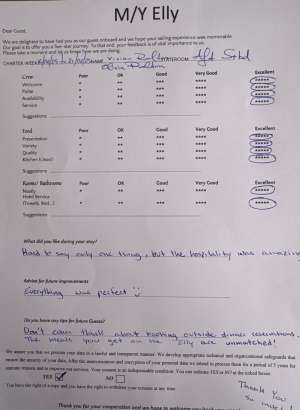 M/Y Elly
Dear Guest,
We are delighted to have had you as our guest onboard and we hope your sailing experience was memorable.
Our goal is to offer you a five-star journey. To that end, your feedback is of vital importance to us.
Please take a moment and let us know how we are doing.
CHARTER WEEK NAME ROOM Aft Stbd
Crew Poor OK Good Very Good Excellent
Welcome * ** *** **** *****
Polite * ** *** **** *****
Availability * ** *** **** *****
Service * ** *** **** *****
Suggestions
Food Poor OK Good Very Good Excellent
Presentation * ** *** **** *****
Variety * ** *** **** *****
Quality * ** *** **** *****
Kitchen & * ** *** **** *****
Suggestions
Rooms/ Bathrooms Poor OK Good Very Good Excellent
Neatly * ** *** **** *****
Hotel Service
(Towels, Bed...) * ** *** **** *****
Suggestions
What did you like during your stay?
Hard to say only one thing, but the hospitality was amazing
Advice for future improvements
Everything was perfect :)
Do you have any tips for future Guests?
Don't even think about booking outside dinner reservations.
The meals you get on the Elly are unmatched!
We assure you that we process your data in a lawful and transparent manner. We develop appropriate technical and organizational safeguards that
ensure the security of your data. After the anonymization and encryption of your personal data we intend to process them for a period of 5 years for
operate reasons and to improve our services. Your consent is an indispensable condition. You can indicate YES or NO at the ticked boxes
YES NO
You have the right of access and you have the right to withdraw your consent at any time.
Thank you
so much!
Thank you for your cooperation and we hope to welcome you back